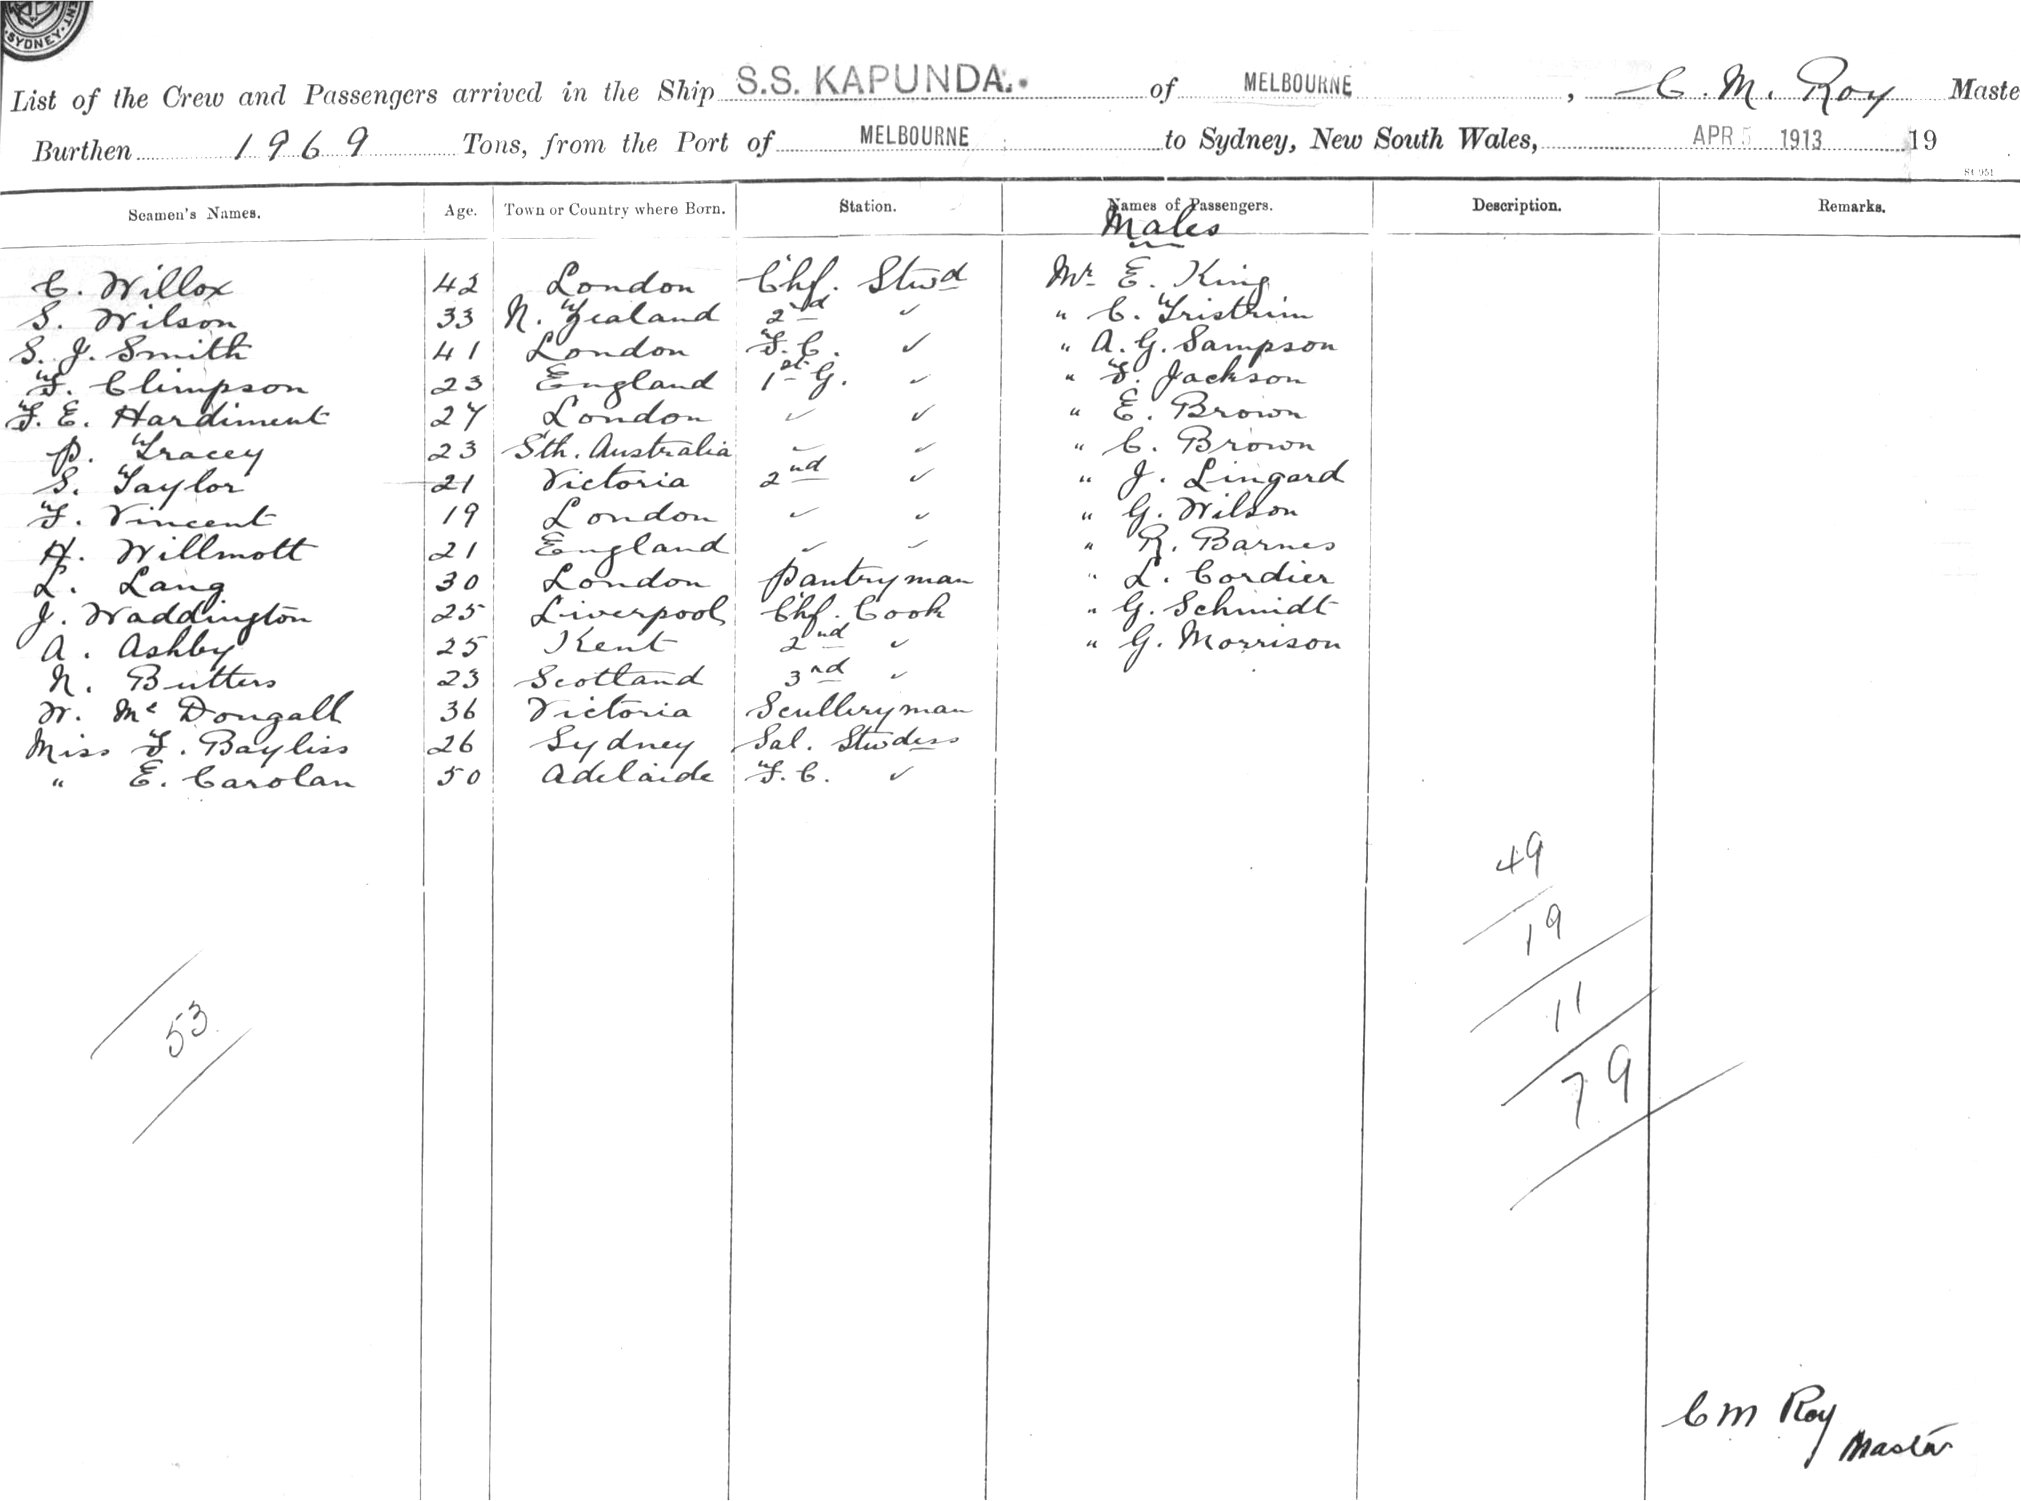 SYDNEY
List of the Crew and Passengers arrived in the Ship S.S. KAPUNDA. of MELBOURNE, C. M. Roy Maste
Burthen 1969 Tons, from the Port of MELBOURNE to Sydney, New South Wales, APR 5 1913 19
Seamen's Names. Age. Town or Country where Born. Station. Names of Passengers. Description. Remarks.
Males
C. Willox 42 London Chf. Stwd Mr E. King
S. Wilson 33 N. Zealand 2nd ✓ " C. Tristrim
S. J. Smith 41 London F.C. ✓ " A. G. Sampson
F. Climpson 23 England 1st G. ✓ " F. Jackson
F. E. Hardiment 27 London ✓ ✓ " E. Brown
P. Tracey 23 Sth. Australia ✓ ✓ " C. Brown
S. Taylor 21 Victoria 2nd ✓ " J. Lingard
F. Vincent 19 London ✓ ✓ " G. Wilson
H. Willmott 21 England ✓ ✓ " R. Barnes
L. Lang 30 London Pantryman " L. Cordier
J. Waddington 25 Liverpool Chf. Cook " G. Schmidt
A. Ashby 25 Kent 2nd ✓ " G. Morrison
N. Butters 23 Scotland 3rd ✓
W. Mc Dougall 36 Victoria Sculleryman
Miss F. Bayliss 26 Sydney Sal. Stwdess
" E. Carolan 50 Adelaide F.C. ✓
49
19
11
79
53
C M Roy
Master